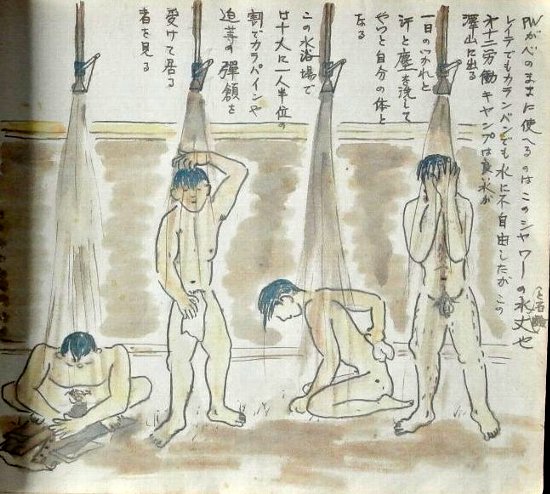 PWがべのままに使へるのはこのシャワーの水丈也
(と石鹸)
レイテでもカランバンでも水に不自由したがこの
オ十二労働キャンプは良い水が
沢山に出る
一日のつかれと
汗と塵を流して
やっと自分の体と
なる
この水浴場で
は十人に一人半位の
割でカラバインや
迫茅の弾領を
受けて居る
者を見る